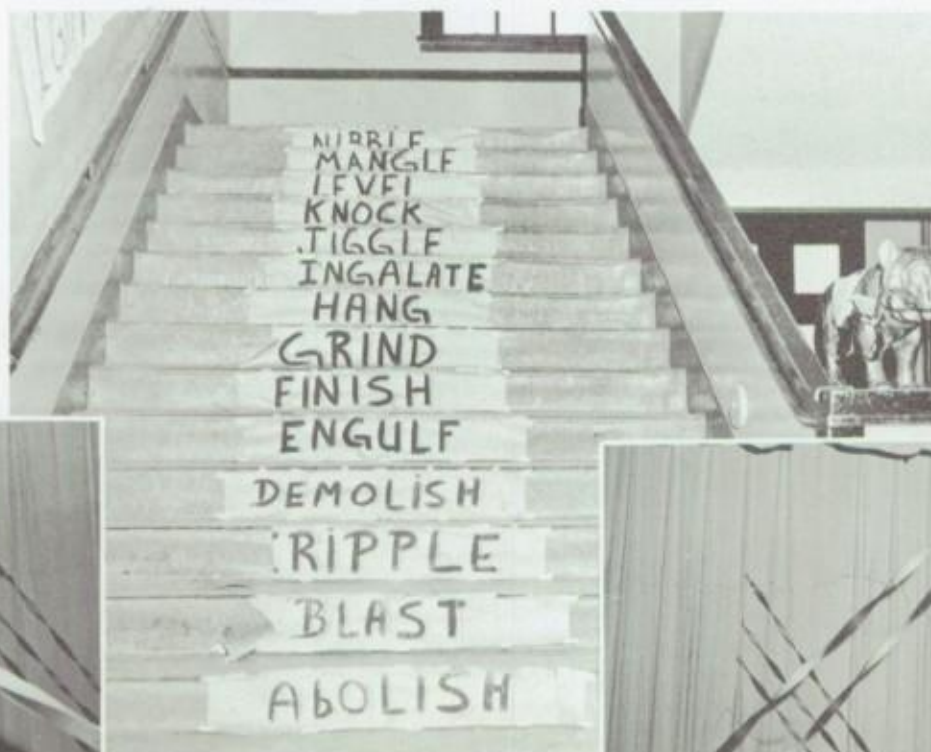 NIBBLE
MANGLE
LEVEL
KNOCK
JIGGLE
INGALATE
HANG
GRIND
FINISH
ENGULF
DEMOLISH
RIPPLE
BLAST
AbOLiSH